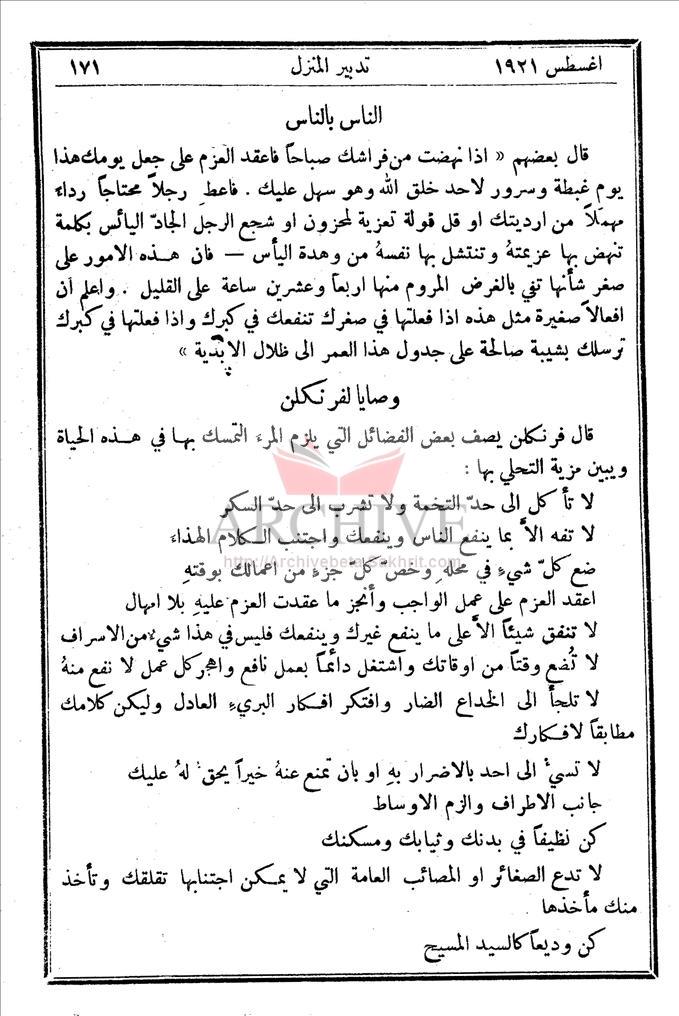 اغسطس ١٩٢١ تدبير المنزل ١٧١
الناس بالناس
قال بعضهم « اذا نهضت من فراشك صباحاً فاعقد العزم على جعل يومك هذا
يوم غبطة وسرور لاحد خلق الله وهو سهل عليك . فاعطِ رجلاً محتاجاً رداءً
مهملاً من ارديتك او قل قولة تعزية لمحزون او شجع الرجل الجادّ اليائس بكلمة
تنهض بها عزيمتهُ وتنتشل بها نفسهُ من وهدة اليأس — فان هذه الامور على
صغر شأنها تفي بالغرض المروم منها اربعاً وعشرين ساعة على القليل . واعلم ان
افعالاً صغيرة مثل هذه اذا فعلتها في صغرك تنفعك في كبرك واذا فعلتها في كبرك
ترسلك بشيبة صالحة على جدول هذا العمر الى ظلال الابدية »
وصايا لفرنكلن
قال فرنكلن يصف بعض الفضائل التي يلزم المرء التمسك بها في هذه الحياة
ويبين مزية التحلي بها :
لا تأكل الى حدّ التخمة ولا تشرب الى حدّ السكر
لا تفه الاَّ بما ينفع الناس وينفعك واجتنب الكلام الهذاء
ARCHIVE
http://Archivebeta.Sakhrit.com
ضع كلّ شيءٍ في محلهِ وخصّ كلّ جزءٍ من اعمالك بوقتهِ
اعقد العزم على عمل الواجب وأنجز ما عقدت العزم عليهِ بلا امهال
لا تنفق شيئاً الاَّ على ما ينفع غيرك وينفعك فليس في هذا شيءٌ من الاسراف
لا تُضع وقتاً من اوقاتك واشتغل دائماً بعمل نافع واهجر كل عمل لا نفع منهُ
لا تلجأ الى الخداع الضار وافتكر افكار البريءِ العادل وليكن كلامك
مطابقاً لافكارك
لا تسيءْ الى احد بالاضرار بهِ او بان تمنع عنهُ خيراً يحق لهُ عليك
جانب الاطراف والزم الاوساط
كن نظيفاً في بدنك وثيابك ومسكنك
لا تدع الصغائر او المصائب العامة التي لا يمكن اجتنابها تقلقك وتأخذ
منك مأخذها
كن وديعاً كالسيد المسيح